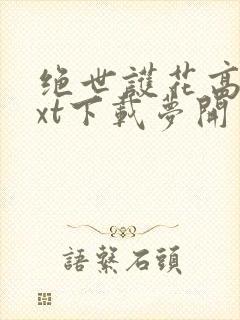 绝世護花高
xt下載夢開
語繫石頭